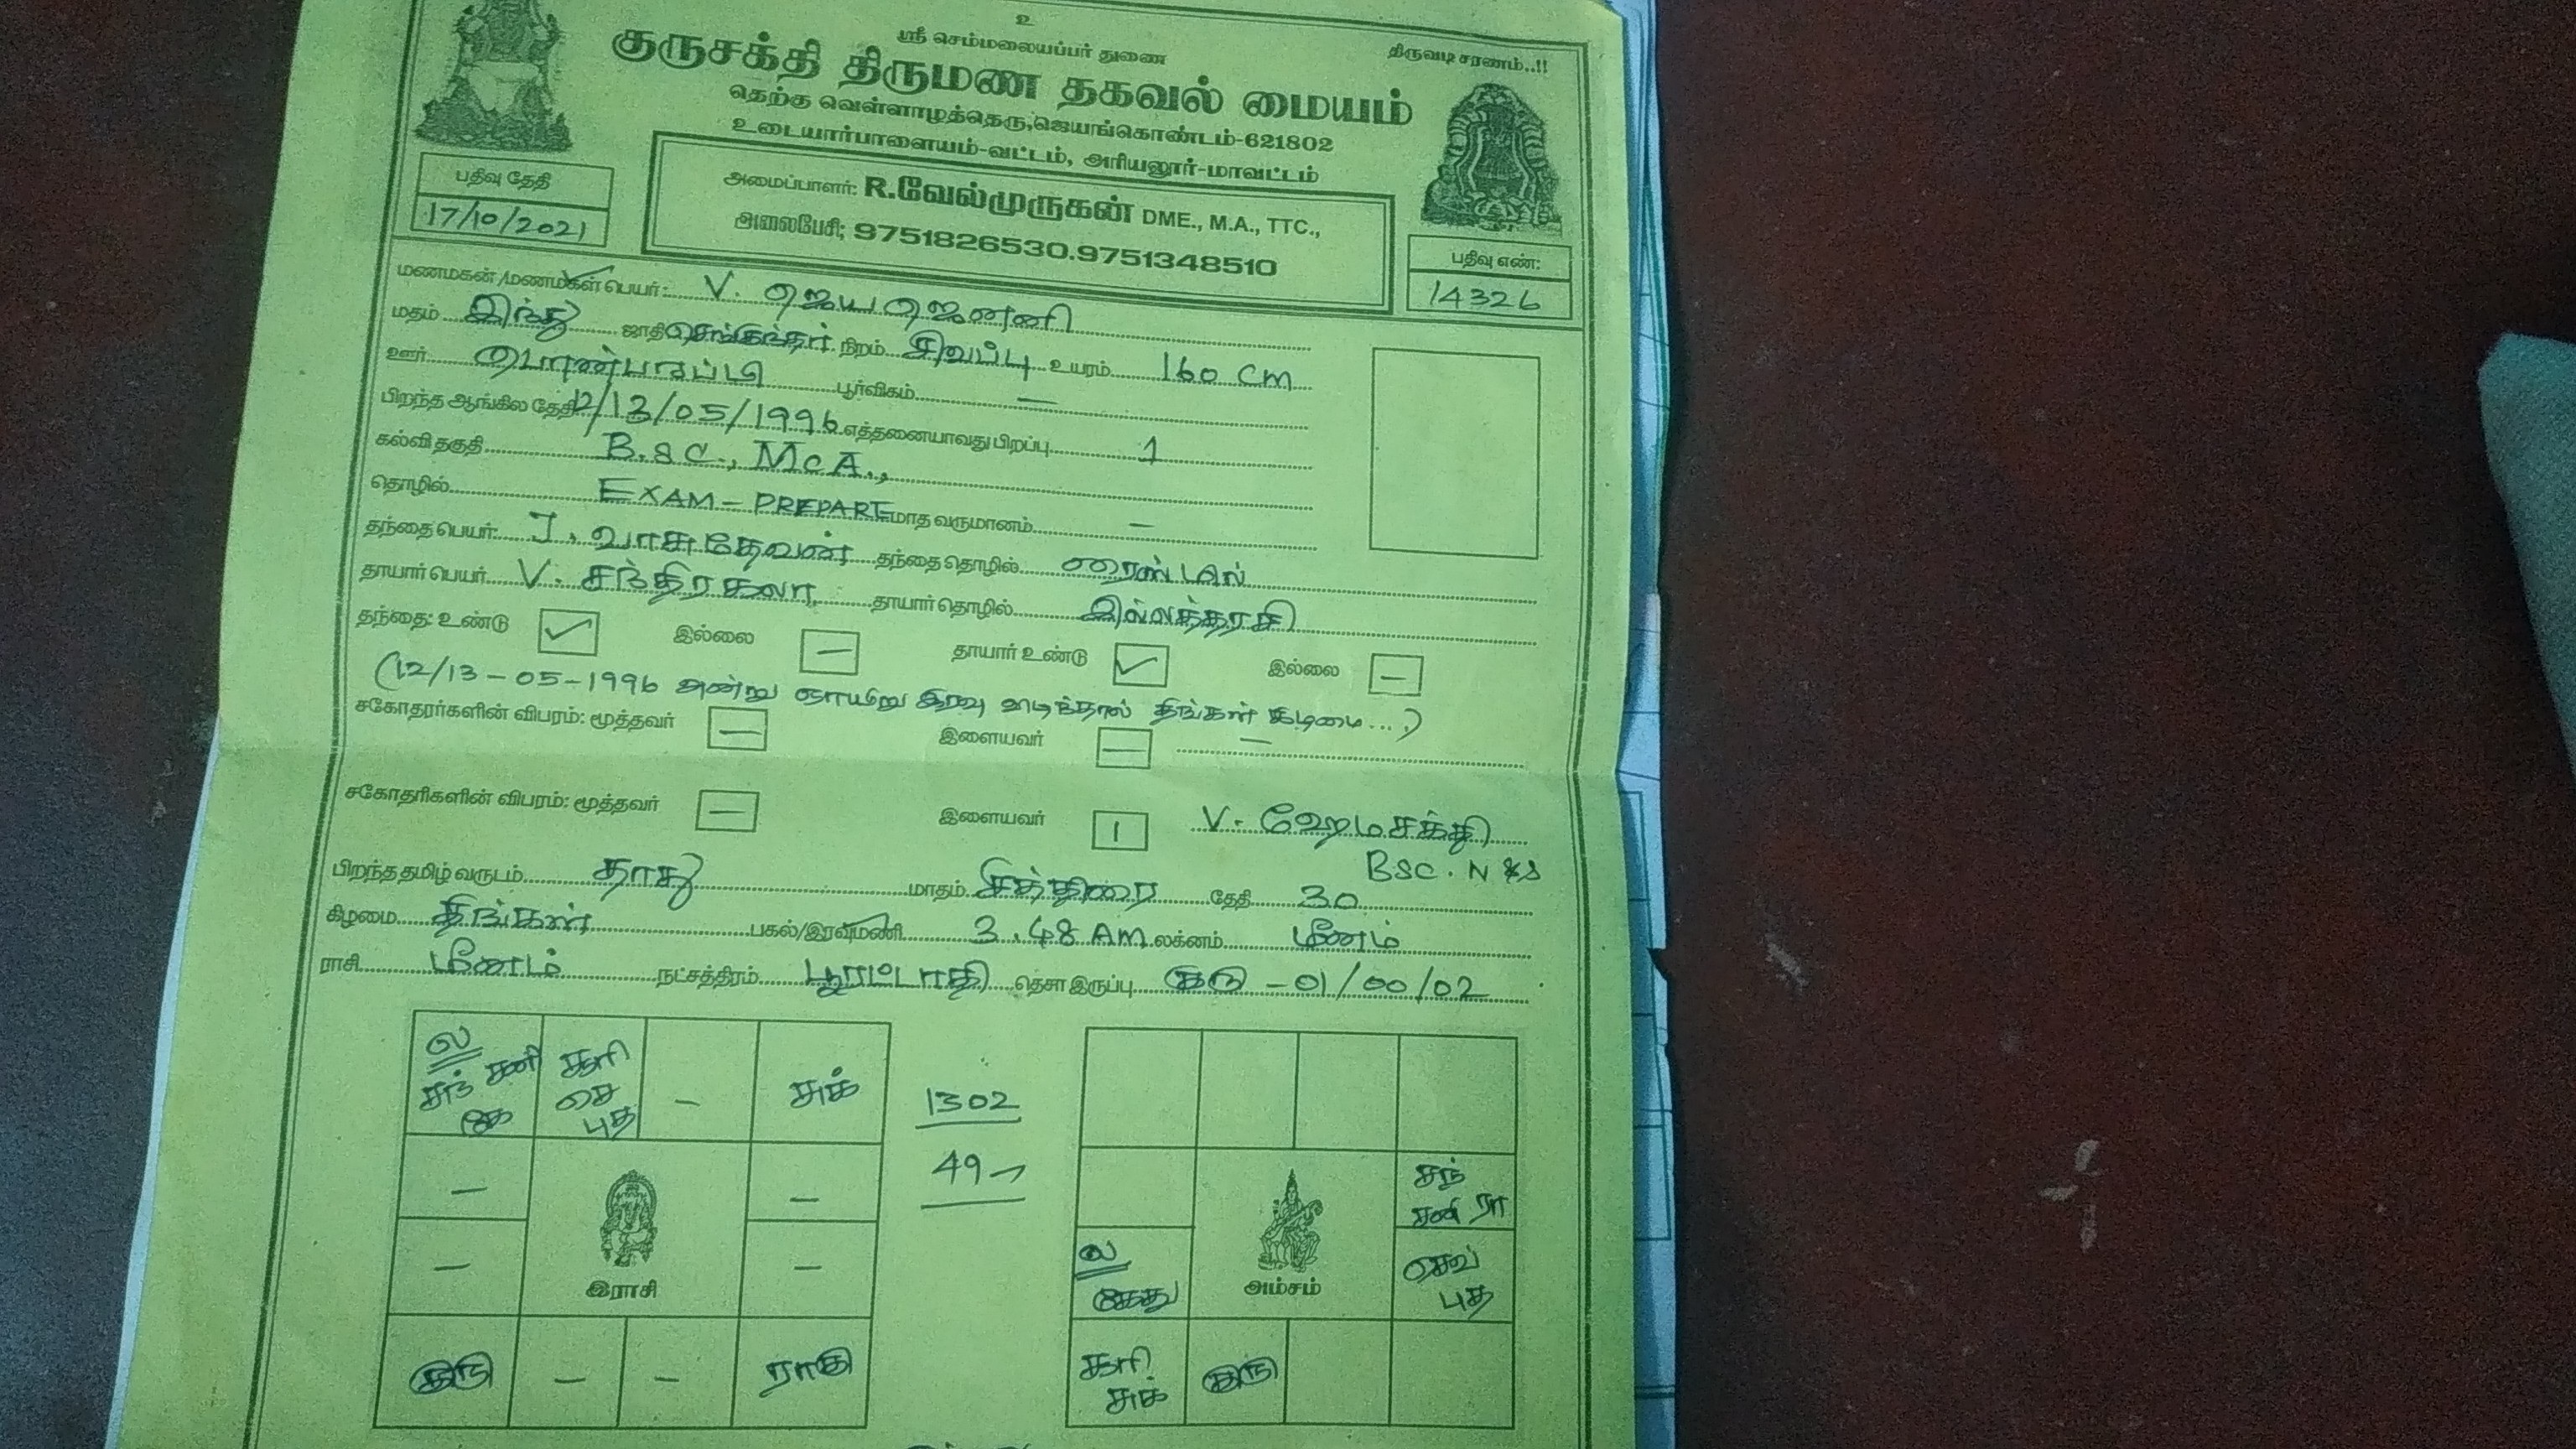 உ
ஸ்ரீ செம்மலையப்பர் துணை
திருவடி சரணம்..!!
குருசக்தி திருமண தகவல் மையம்
தெற்கு வெள்ளாழத்தெரு,ஜெயங்கொண்டம்-621802
உடையார்பாளையம்-வட்டம், அரியலூர்-மாவட்டம்
பதிவு தேதி
17/10/2021
அமைப்பாளர்: R.வேல்முருகன் DME., M.A., TTC.,
அலைபேசி; 9751826530.9751348510
பதிவு எண்:
14326
மணமகன்/மணமகள் பெயர்: V. ஜெய ஜெனனி
மதம் இந்து ஜாதி செங்குந்தர் நிறம் சிவப்பு உயரம் 160 cm
ஊர் பொன்பரப்பி பூர்விகம் —
பிறந்த ஆங்கில தேதி 12/13/05/1996 எத்தனையாவது பிறப்பு 1
கல்வி தகுதி B.sc., McA.,
தொழில் EXAM - PREPARE மாத வருமானம் —
தந்தை பெயர்: J. வாசுதேவன் தந்தை தொழில் ரைஸ் மில்
தாயார் பெயர் V. சந்திரகலா தாயார் தொழில் இல்லத்தரசி
தந்தை: உண்டு ✓ இல்லை — தாயார் உண்டு ✓ இல்லை —
(12/13-05-1996 அன்று ஞாயிறு இரவு விடிந்தால் திங்கள் கிழமை...)
சகோதரர்களின் விபரம்: மூத்தவர் — இளையவர் — —
சகோதரிகளின் விபரம்: மூத்தவர் — இளையவர் 1 V. ஹேமசக்தி
BSC. N
பிறந்த தமிழ் வருடம் தாது மாதம் சித்திரை தேதி 30
கிழமை திங்கள் பகல்/இரவு மணி 3.48 AM லக்னம் மீனம்
ராசி மீனம் நட்சத்திரம் பூரட்டாதி தெசா இருப்பு குரு - 01/00/02
ல சனி சந் கே
சூரி செ புத
—
சுக்
—
—
—
—
இராசி
குரு
—
—
ராகு
1302
49
சந் சனி ரா
ல கேது
செவ் புத
அம்சம்
சூரி சுக்
குரு